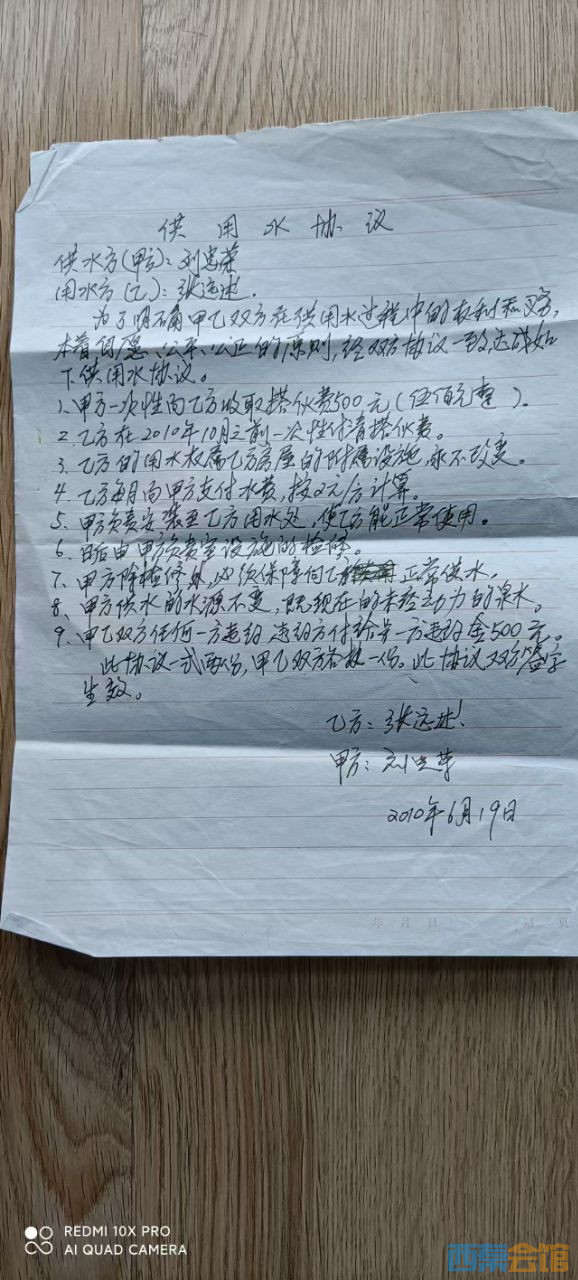 供用水协议
供水方(甲方):刘忠荣
用水方(乙):张远述.
为了明确甲乙双方在供用水过程中的权利和义务,
本着自愿、公平、公正的原则,经双方协议一致,达成如
下供用水协议。
1、甲方一次性向乙方收取搭伙费500元(伍佰元整)。
2、乙方在2010年10月之前一次性付清搭伙费。
3、乙方的用水权属乙方房屋的附属设施,永不改变。
4、乙方每月向甲方支付水费,按2元/方计算。
5、甲方负责安装至乙方用水处,使乙方能正常使用。
6、日后由甲方负责室设施的检修。
7、甲方除检修外,必须保障向乙方正常供水。
8、甲方供水的水源不变,既现在的未经动力的泉水。
9、甲乙双方任何一方违约,违约方付给另一方违约金500元。
此协议一式两份,甲乙双方各执一份。此协议双方签字
生效。
乙方:张远述
甲方:刘忠荣
2010年6月19日
年 月 日
页
REDMI 10X PRO
AI QUAD CAMERA
西祠会馆